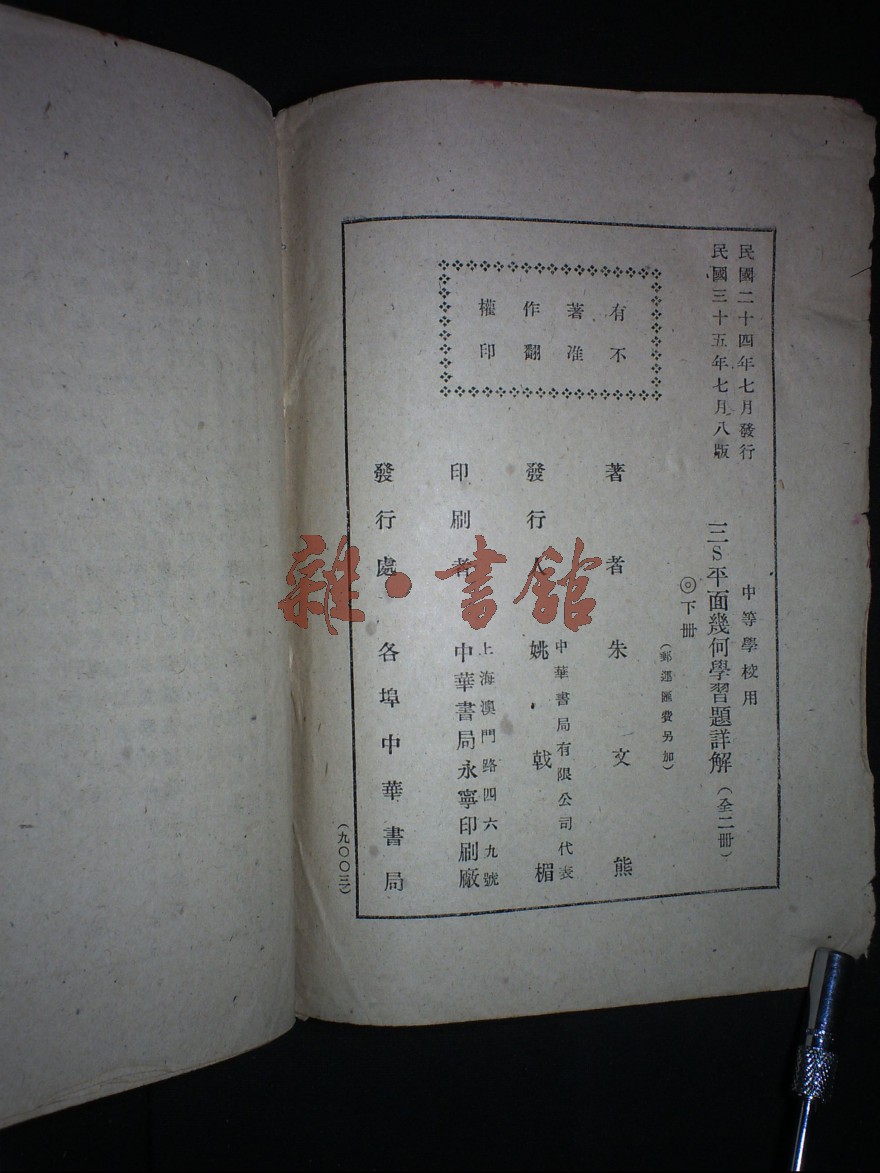 民國二十四年七月發行
民國三十五年七月八版
中等學校用
三S平面幾何學習題詳解（全二冊）
◎下冊
（郵運匯費另加）
有著作權
不准翻印
著者 朱文熊
發行人 姚戟楣
中華書局有限公司代表
印刷者 中華書局永寧印刷廠
上海澳門路四六九號
發行處 各埠中華書局
（九〇〇三）
雜·書館